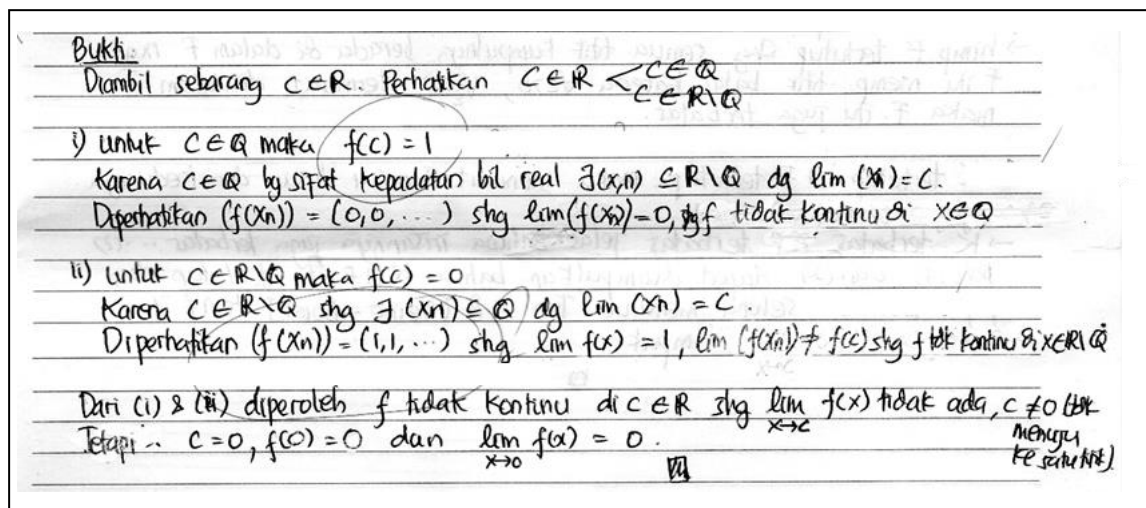 Bukti.
Diambil sebarang C ∈ ℝ. Perhatikan C ∈ ℝ < C ∈ ℚ
C ∈ ℝ\ℚ
i) untuk C ∈ ℚ maka f(c) = 1
Karena C ∈ ℚ by sifat kepadatan bil real ∃(x,n) ⊆ ℝ\ℚ dg lim (xn) = C.
Diperhatikan (f(xn)) = (0,0, ...) shg lim(f(xn)) = 0, f tidak kontinu di x∈ℚ
ii) untuk C ∈ ℝ\ℚ maka f(c) = 0
Karena C ∈ ℝ\ℚ shg ∃ (xn) ⊆ ℚ dg lim (xn) = C
Diperhatikan (f(xn)) = (1,1, ...) shg lim f(x) = 1, lim (f(xn)) ≠ f(c) shg f tdk kontinu di x∈ℝ\ℚ
Dari (i) & (ii) diperoleh f tidak kontinu di c ∈ ℝ shg lim f(x) tidak ada, c ≠ 0 (tdk
x→c
menuju
ke satu ttk).
Tetapi .. C = 0, f(0) = 0 dan lim f(x) = 0.
x→0